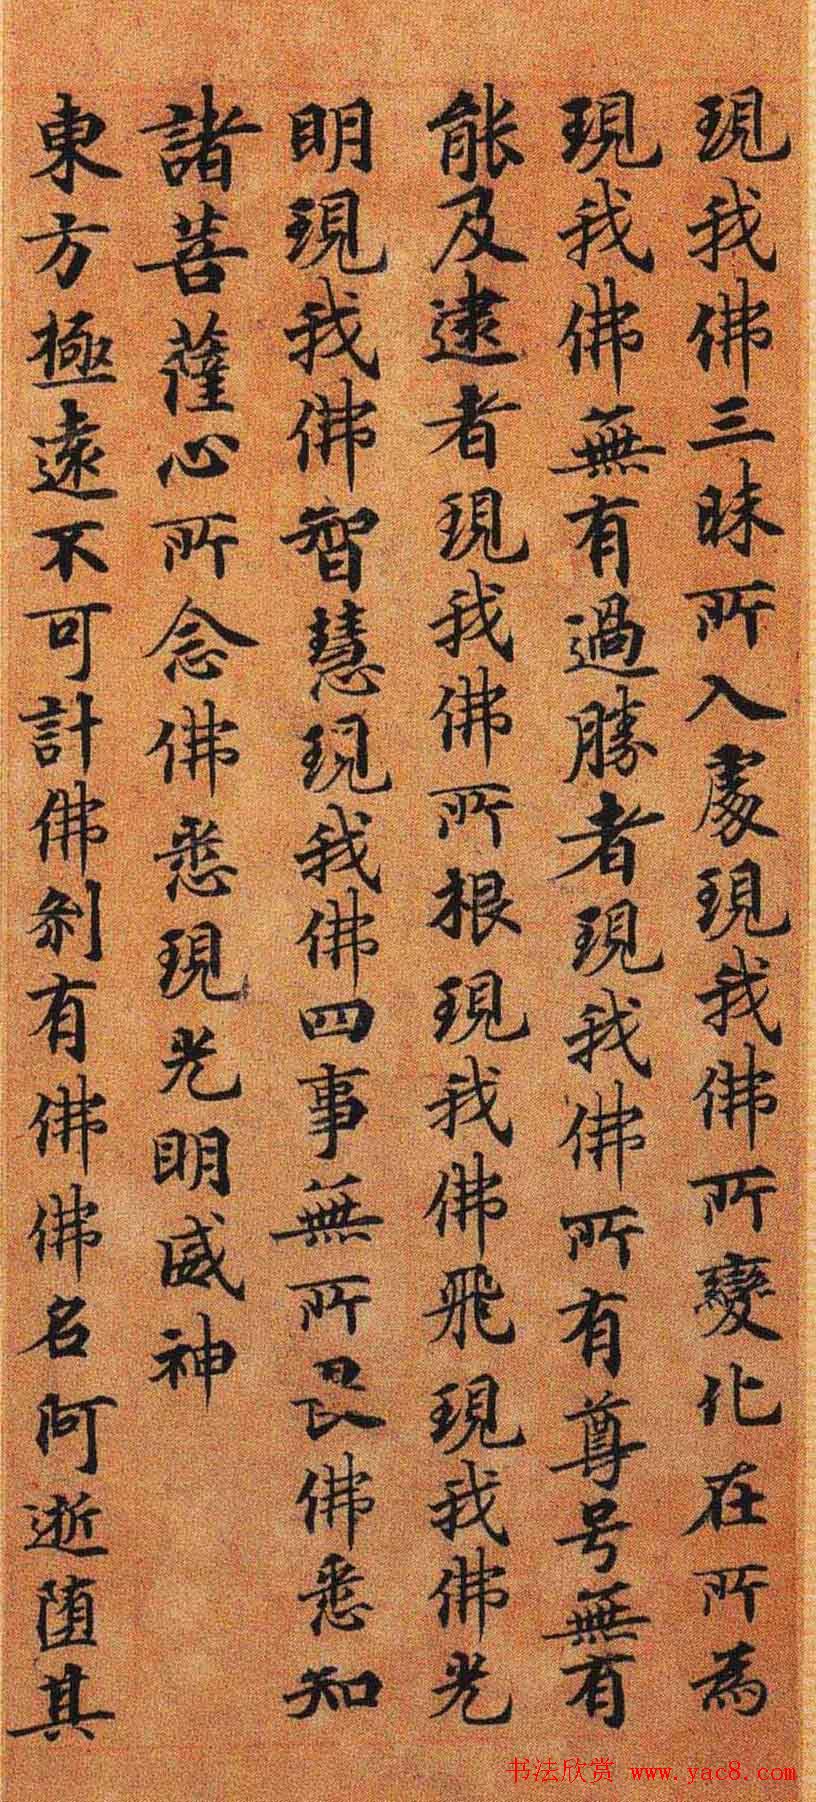 現我佛三昧所入處現我佛所變化在所為
現我佛無有過勝者現我佛所有尊号無有
能及逮者現我佛所根現我佛飛現我佛光
明現我佛智慧現我佛四事無所畏佛悉知
諸菩薩心所念佛悉現光明威神
東方極遠不可計佛剎有佛佛名阿逝墮其
书法欣赏 www.yac8.com